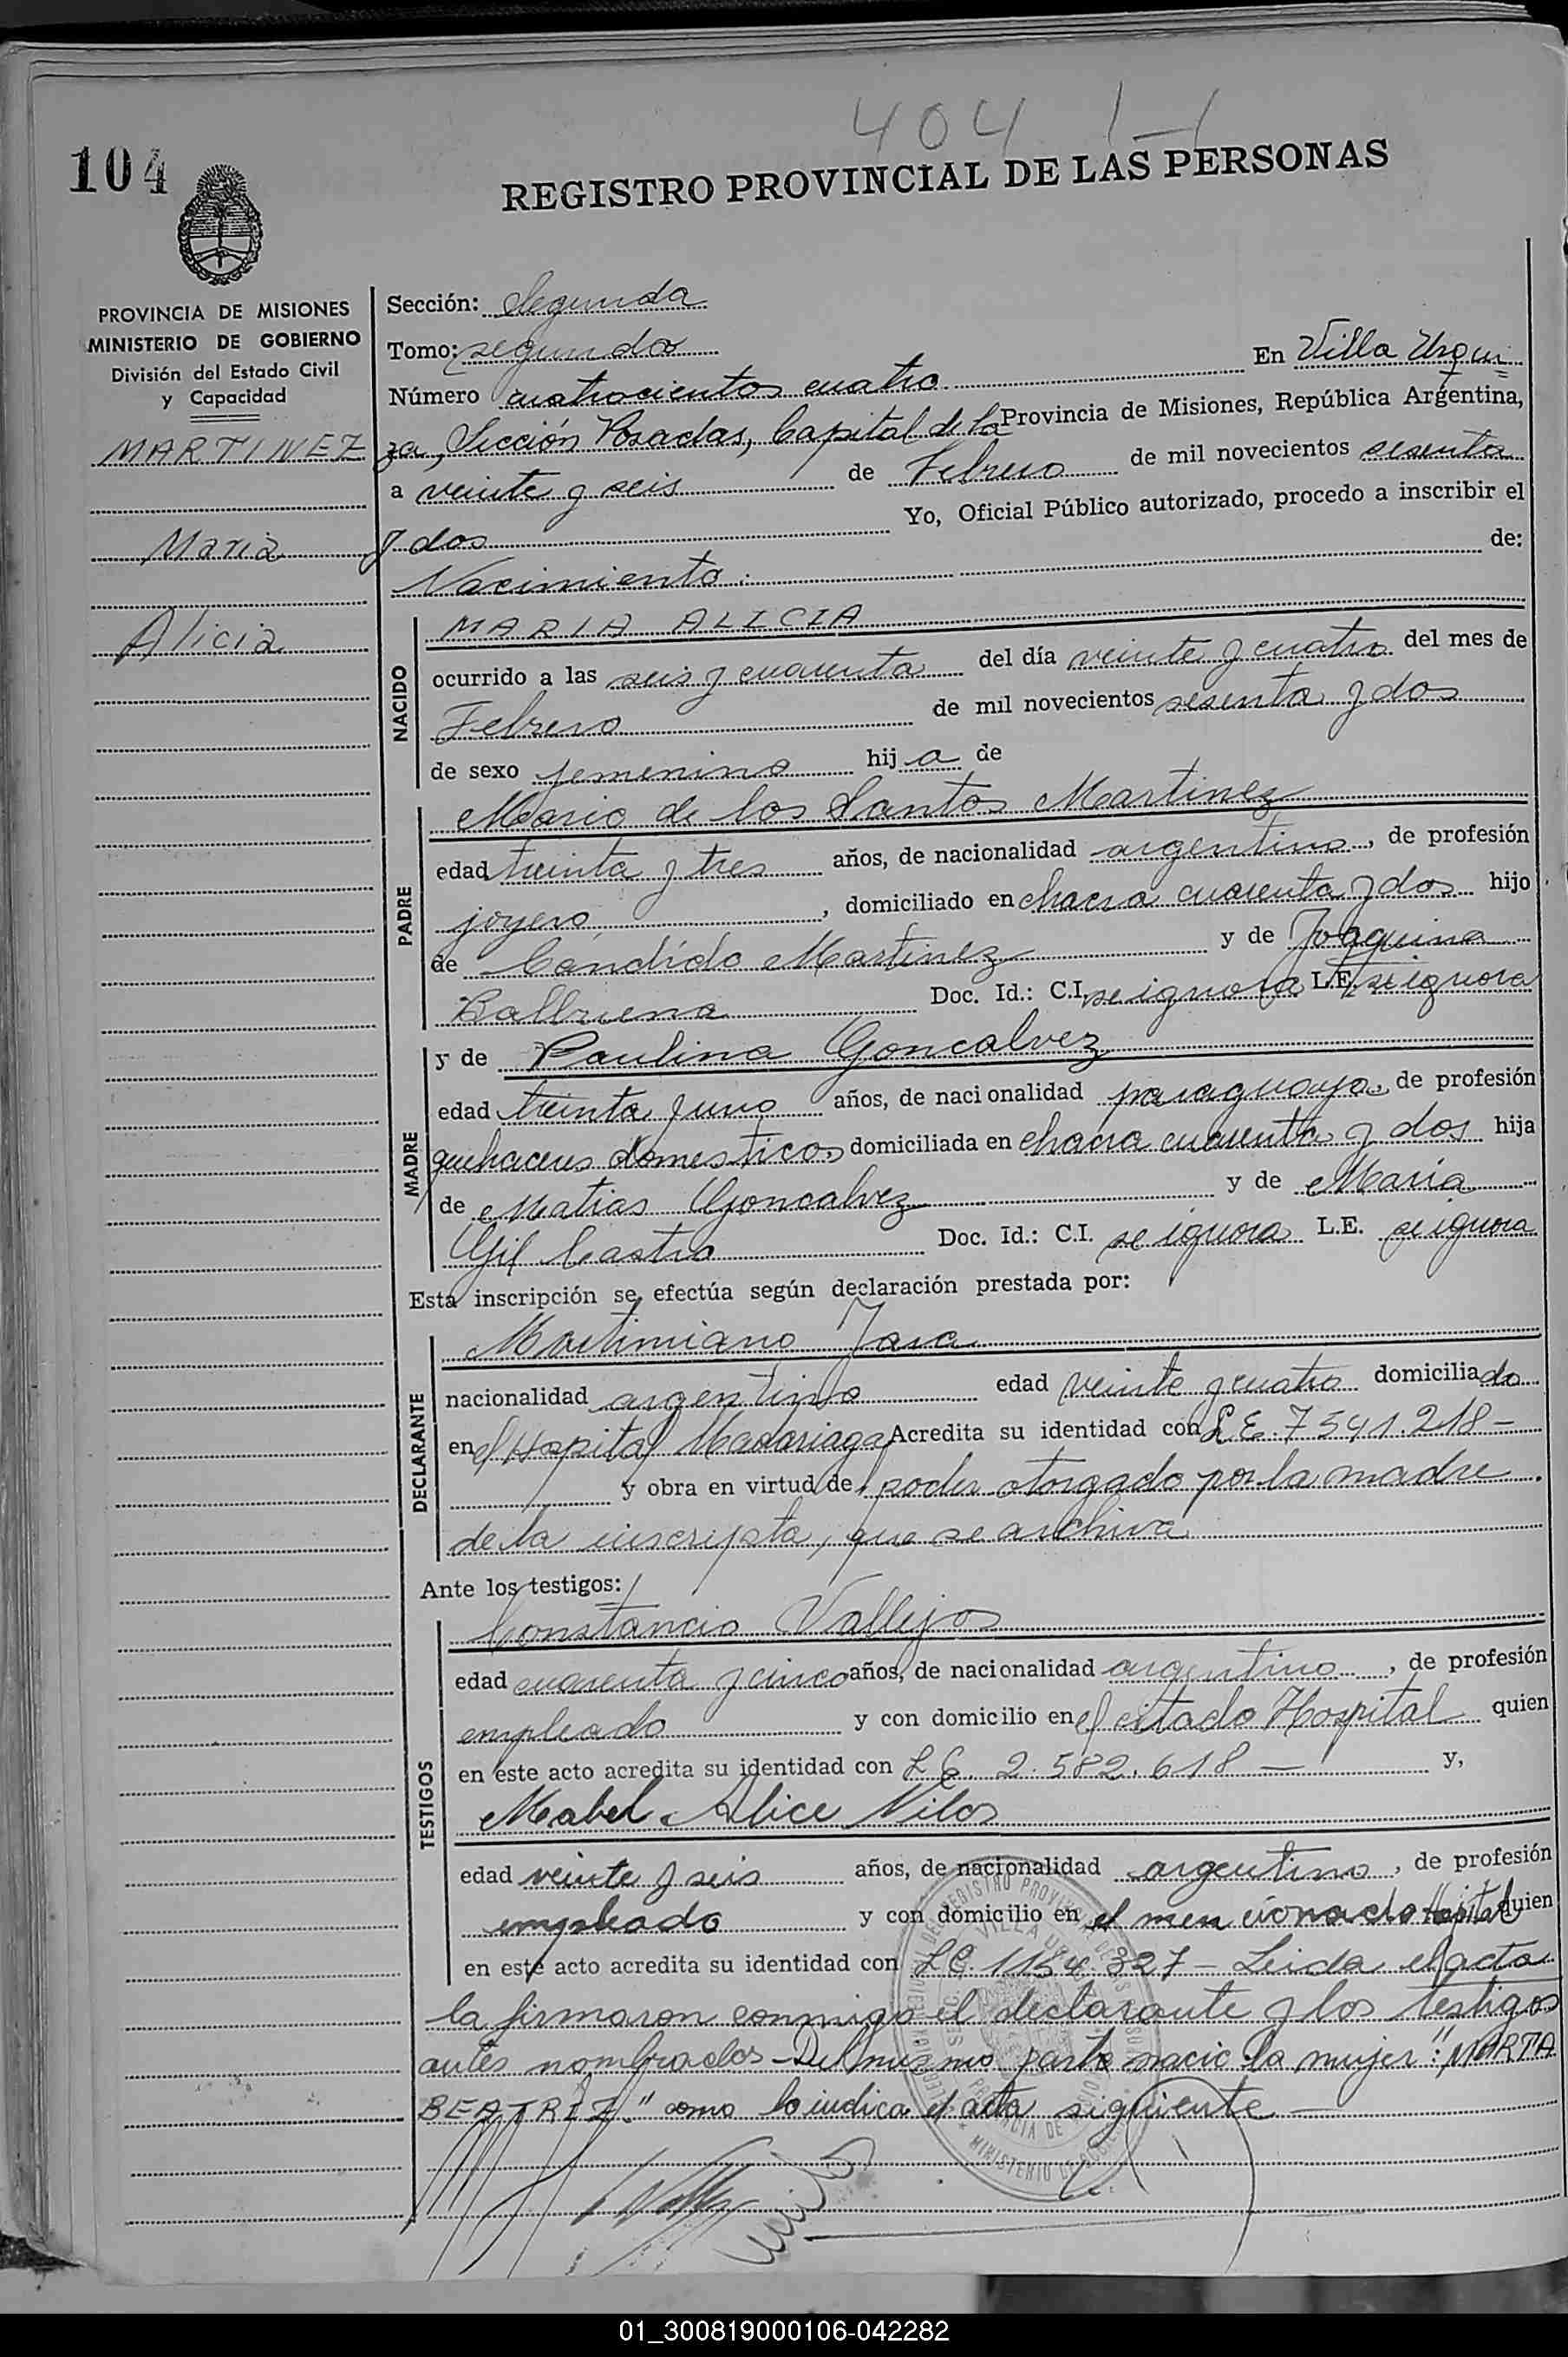 404 1-1
104
REGISTRO PROVINCIAL DE LAS PERSONAS
PROVINCIA DE MISIONES
MINISTERIO DE GOBIERNO
División del Estado Civil
y Capacidad
MARTINEZ
Maria
Alicia
Sección: Segunda
Tomo: segundo
En Villa Urqui=
Número cuatrocientos cuatro
za, Sección Posadas, Capital de la Provincia de Misiones, República Argentina,
a veinte y seis de Febrero de mil novecientos sesenta
y dos Yo, Oficial Público autorizado, procedo a inscribir el
Nacimiento de:
NACIDO
MARIA ALICIA
ocurrido a las seis y cuarenta del día veinte y cuatro del mes de
Febrero de mil novecientos sesenta y dos
de sexo femenino hij a de
PADRE
Mario de los Santos Martinez
edad treinta y tres años, de nacionalidad argentino, de profesión
joyero, domiciliado en chacra cuarenta y dos hijo
de Candido Martinez y de Joaquina
Balbuena Doc. Id.: C.I. se ignora L.E. se ignora
MADRE
y de Paulina Goncalvez
edad treinta y uno años, de nacionalidad paraguaya, de profesión
quehaceres domesticos domiciliada en chacra cuarenta y dos hija
de Matias Goncalvez y de Maria
Gil Castro Doc. Id.: C.I. se ignora L.E. se ignora
Esta inscripción se efectúa según declaración prestada por:
DECLARANTE
Martimiano Jara
nacionalidad argentino edad veinte y cuatro domiciliado
en el Hospital Madariaga Acredita su identidad con L.E. 7541.218-
y obra en virtud de poder otorgado por la madre
de la inscripta, que se archiva
Ante los testigos:
TESTIGOS
Constancio Vallejos
edad cuarenta y cinco años, de nacionalidad argentino, de profesión
empleado y con domicilio en el citado Hospital quien
en este acto acredita su identidad con L.E. 2.582.618 — y,
Mabel Alice Vilos
edad veinte y seis años, de nacionalidad argentino, de profesión
empleado y con domicilio en el mencionado Hospital quien
en este acto acredita su identidad con L.C. 1154.327 - Leida el acta
la firmaron conmigo el declarante y los testigos
antes nombrados - Del mismo parto nació la mujer: "MARTA
BEATRIZ." como lo indica el acta siguiente —
01_300819000106-042282